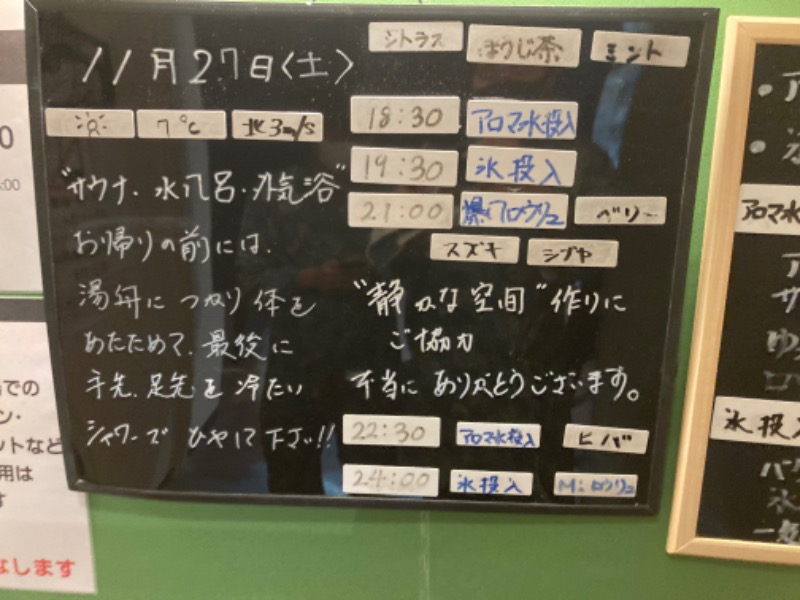 シトラス ほうじ茶 ミント
11月27日〈土〉
18:30 アロマ水投入
7℃ 北3m/s
19:30 氷投入
21:00 爆アロウリュ ベリー
スズキ シブヤ
"サウナ・水風呂・外気浴"
お帰りの前には、
湯舟につかり体を
あたためて、最後に
手先、足先を冷たい
シャワーでひやして下さい!!
"静かな空間"作りに
ご協力
本当にありがとうございます。
22:30 アロマ水投入 ヒノバ
24:00 氷投入 M:ロウリュ
アロマ水
氷投入
での
ン・
ットなど
用は
す
なします